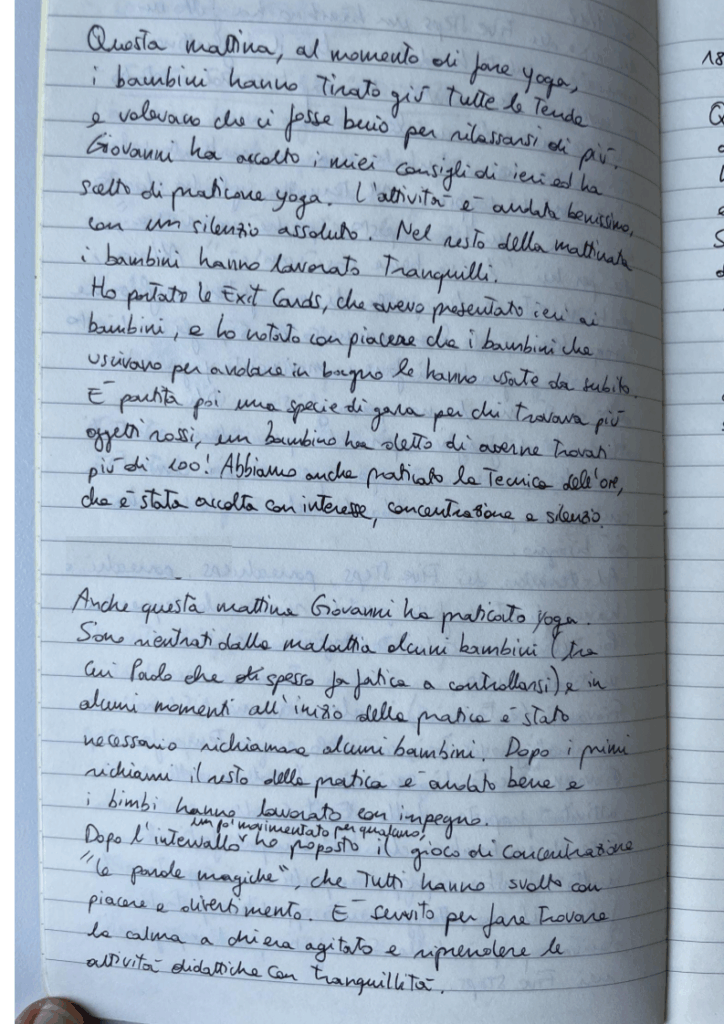 Questa mattina, al momento di fare yoga,
i bambini hanno tirato giù tutte le tende
e volevano che ci fosse buio per rilassarsi di più.
Giovanni ha accolto i miei consigli di ieri ed ha
scelto di praticare yoga. L'attività è andata benissimo,
con un silenzio assoluto. Nel resto della mattinata
i bambini hanno lavorato tranquilli.
Ho portato le Exit Cards, che avevo presentato ieri ai
bambini, e ho notato con piacere che i bambini che
uscivano per andare in bagno le hanno usate da subito.
È partita poi una specie di gara per chi trovava più
oggetti rossi, un bambino ha detto di averne trovati
più di 100! Abbiamo anche praticato la tecnica dell'ore,
che è stata accolta con interesse, concentrazione e silenzio.
Anche questa mattina Giovanni ha praticato yoga.
Sono rientrati dalla malattia alcuni bambini (tra
cui Paolo che spesso fa fatica a controllarsi) e in
alcuni momenti all'inizio della pratica è stato
necessario richiamare alcuni bambini. Dopo i primi
richiami il resto della pratica è andato bene e
i bimbi hanno lavorato con impegno.
un po' movimentato per qualcuno,
Dopo l'intervallo ho proposto il gioco di concentrazione
"le parole magiche", che tutti hanno svolto con
piacere e divertimento. È servito per fare trovare
la calma a chi era agitato e riprendere le
attività didattiche con tranquillità.
18